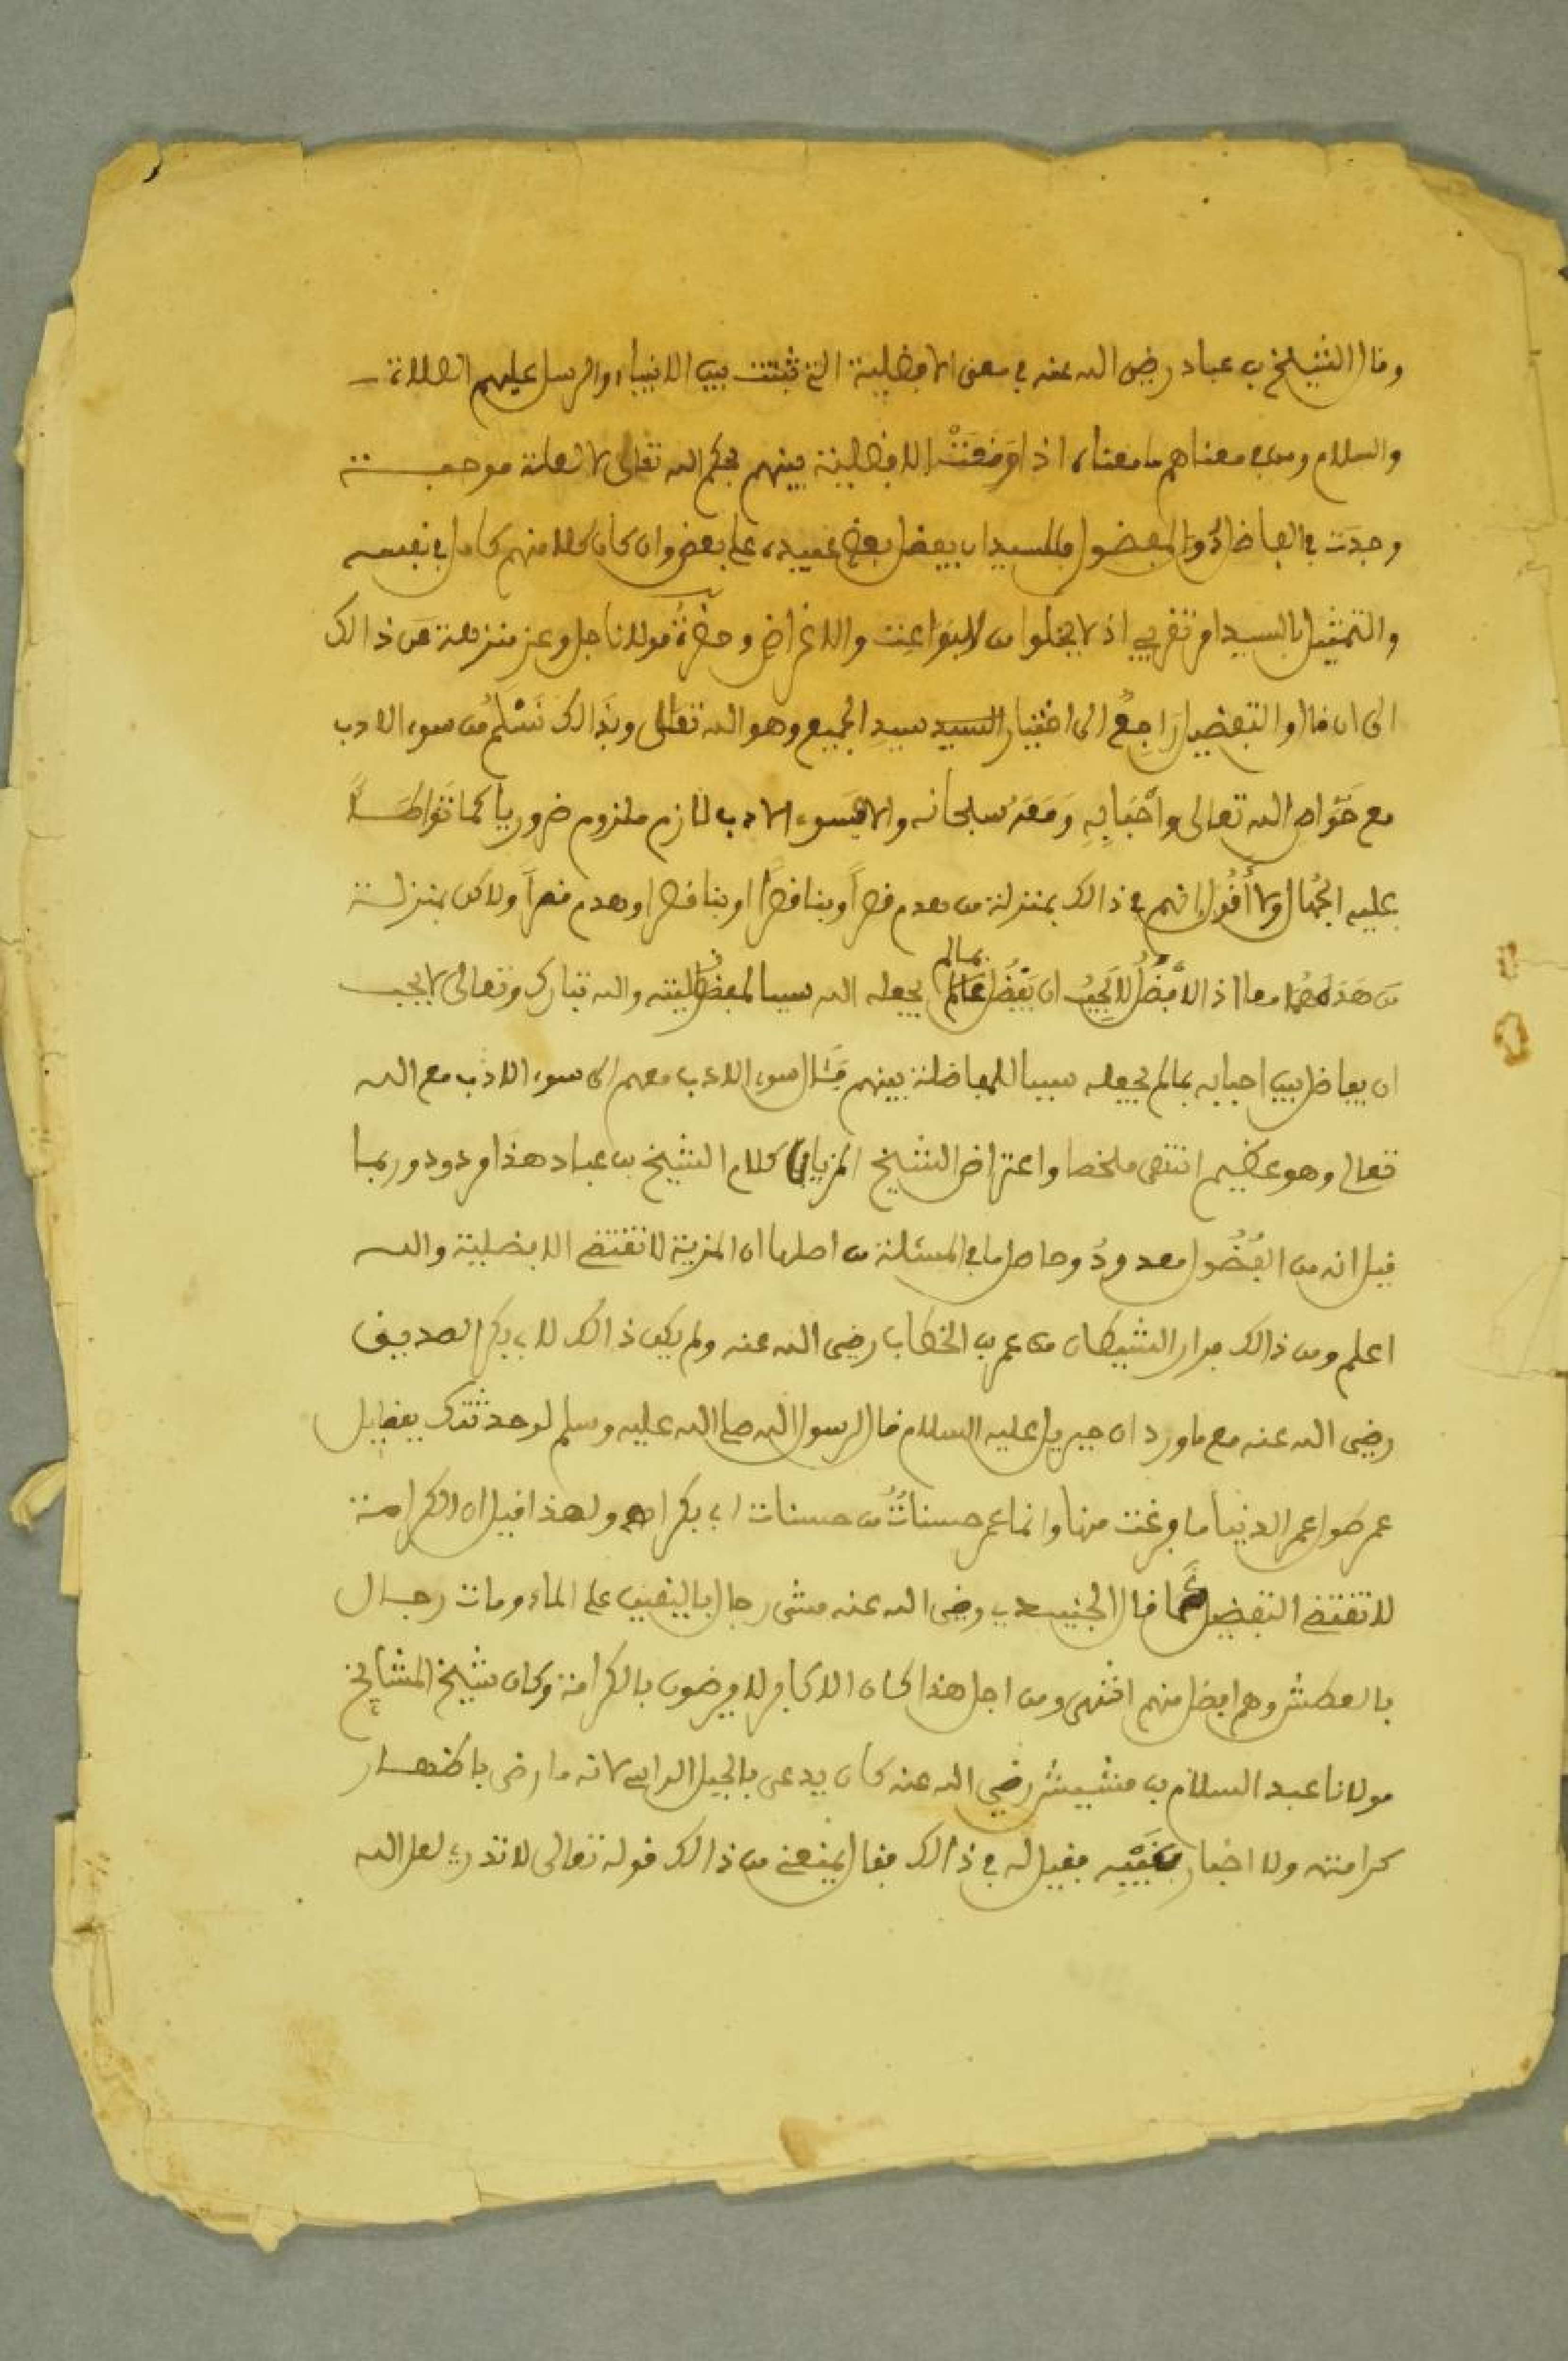 وقال الشيخ بن عباد رضي الله عنه في معنى الافضلية التي ثبتت بين الانبياء والرسل عليهم الصلاة
والسلام ومن معناهم ما معناه اذا وقعت الافضلية بينهم بحكم الله تعالى لا لعلة موجبة
وجدت في الفاضل دون المفضول فللسيد ان يفضل بعض عبيده على بعض وان كان كلا منهم كامل في نفسه
والتمثيل بالسيد امر تقريبي اذ لا يخلوا من البواعث والاغراض وحضرة مولانا جل وعز منزهة عن ذالك
الى ان قال والتفضيل راجع الى اختيار السيد سيد الجميع وهو الله تعالى وبذالك نسلم من سوء الادب
مع خواص الله تعالى واحبابه ومعه سبحانه والا فسوء الادب لازم ملزوم ضروريا كما تواطـلا
عليه الجهال ولا أقول انهم في ذالك بمنزلة من هدم قصرا وبنا قصرا او بنا قصرا وهدم مصرا ولاكن بمنزلة
من هدمهما معا اذ الافضل لا يجب ان يفضل بمالم يجعله الله سببا لمفضوليته والله تبارك وتعالى لا يجب
ان يفاضل بين احبابه بمالم يجعله سببا للمفاضلة بينهم فمثال سوء الادب معهم الى سوء الادب مع الله
تعالى وهو عظيم انتهى ملخصا واعتراض الشيخ المزيان كلام الشيخ بن عباد هذا مردود وربما
قيل انه من الفضول معدود وحاصل ما في المسئلة من اصلها ان المزية لا تقتضي الافضلية والله
اعلم ومن ذالك فرار الشيطان من عمر بن الخطاب رضي الله عنه ولم يكن ذالك لابي بكر الصديق
رضي الله عنه مع ما ورد ان جبريل عليه السلام قال لرسول الله صلى الله عليه وسلم لو حدثتك بفضايل
عمر طول عمر الدنيا ما فرغت منها وانما عمر حسنات من حسنات ابي بكر اهـ ولهذا قيل ان الكرامة
لا تقتضي التفضيل كما قال الجنيد رضي الله عنه مشى رجال باليقين على الماء ومات رجال
بالعطش وهم افضل منهم انتهى ومن اجل هذا كان الاكابر لا يرضون بالكرامة وكان شيخ المشائخ
مولانا عبد السلام بن مشيش رضي الله عنه كان يدعى بالجبل الراسي لانه ما رضى باظهار
كرامته ولا اخبار بغيبه فقيل له في ذالك فقال يمنعني من ذالك قوله تعالى لا تدري لعل الله